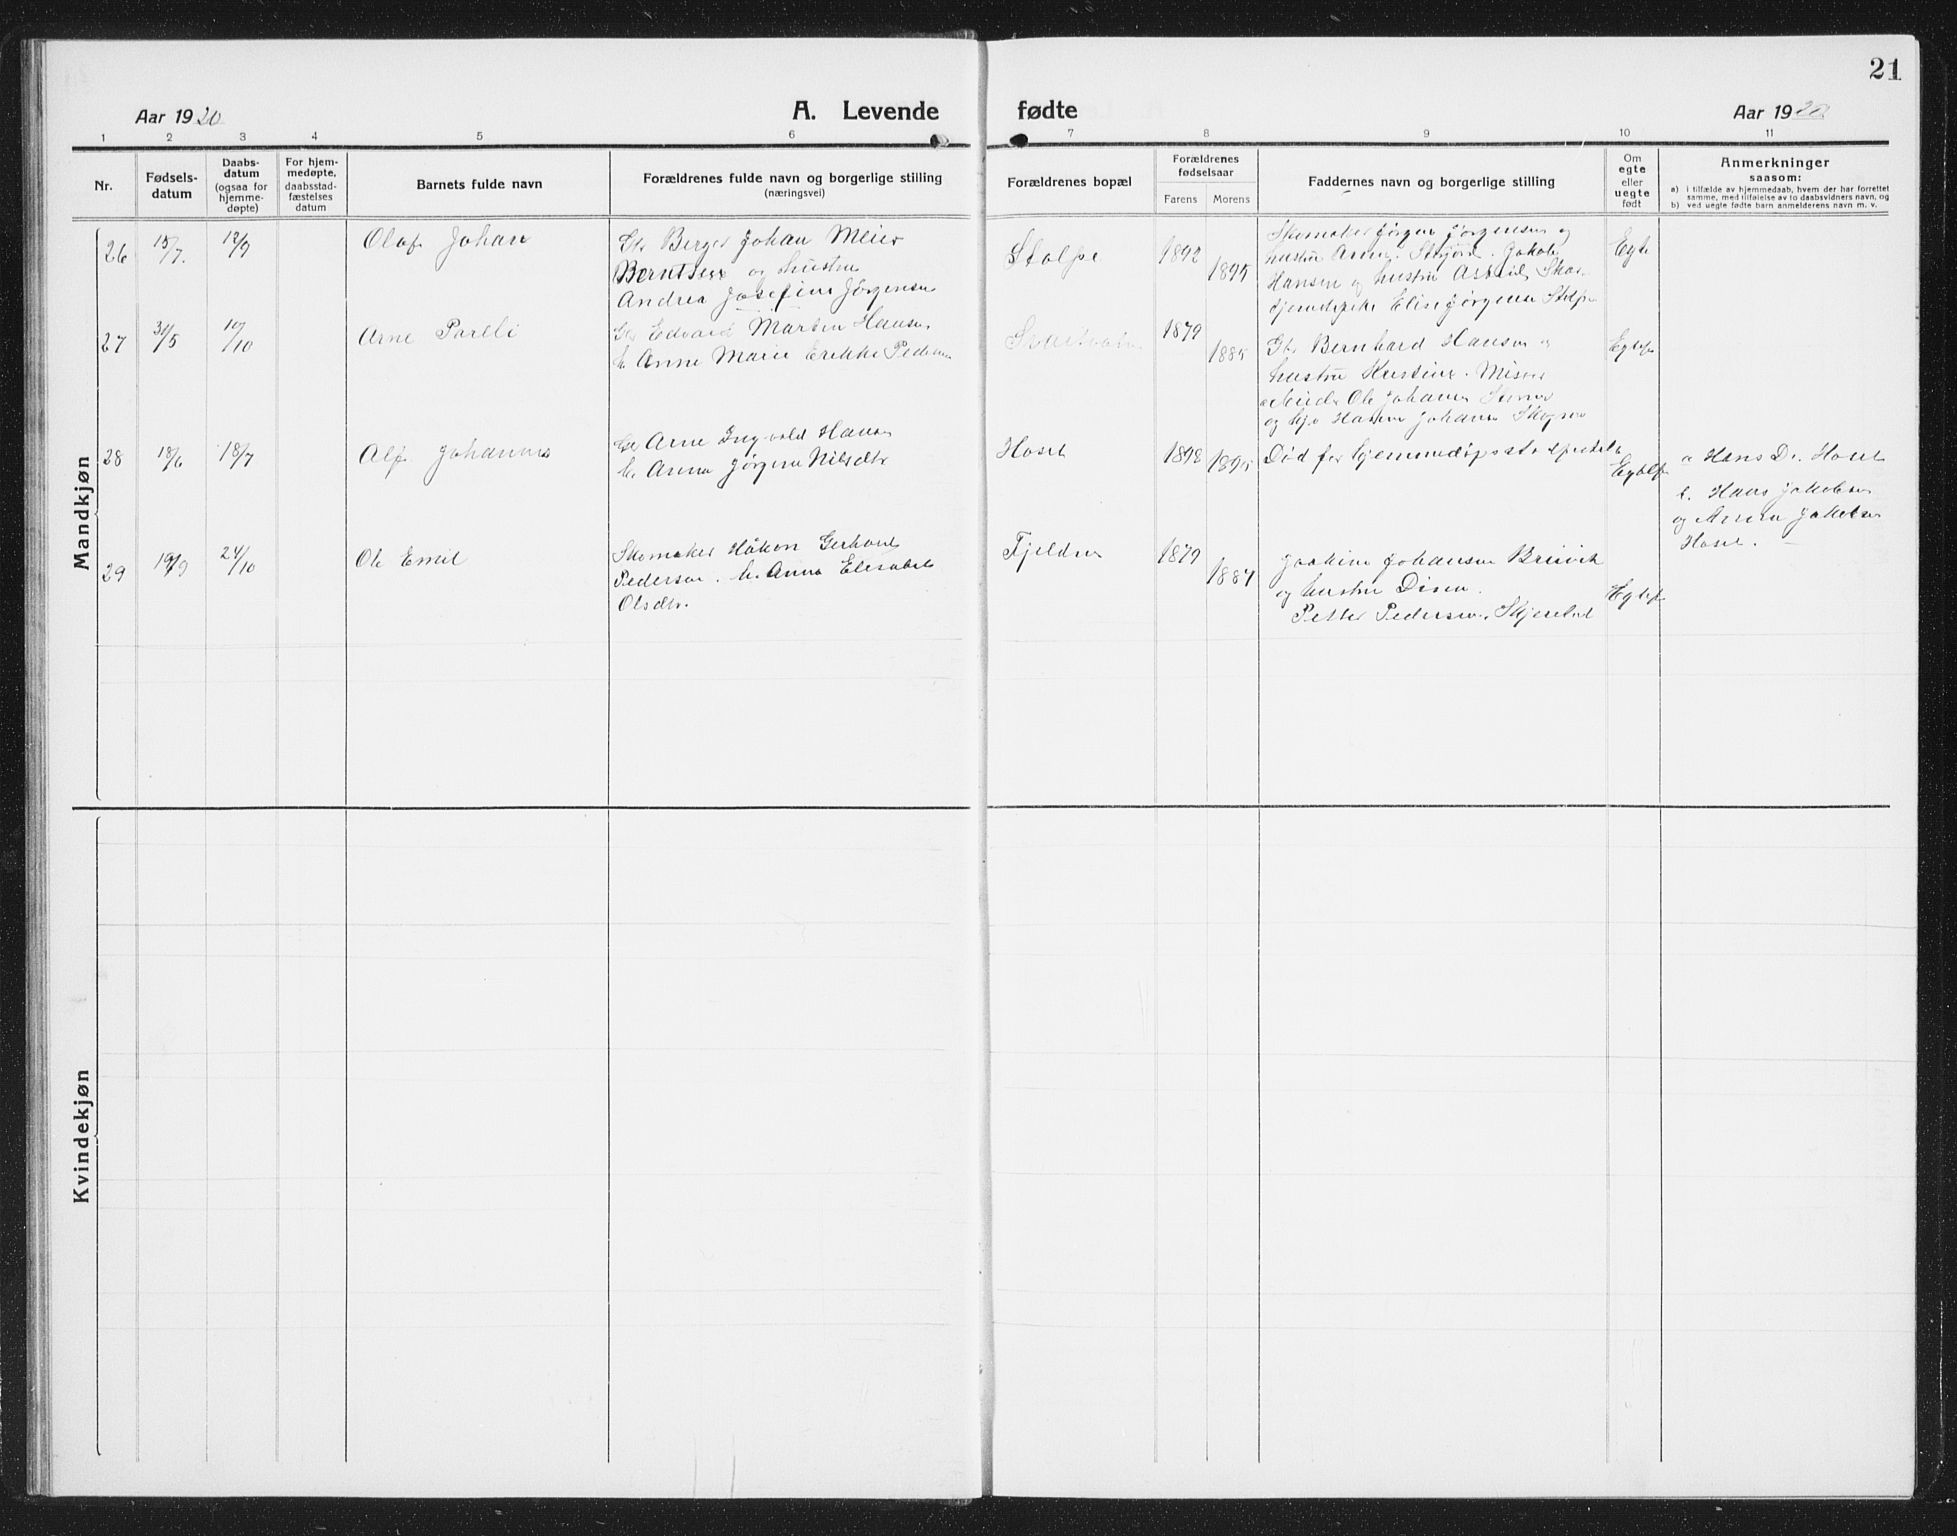 21
Aar 1920
A. Levende fødte
Aar 1920
1 2 3 4 5 6 7 8 9 10 11
Nr.
Fødsels-
datum
Daabs-
datum
(ogsaa for
hjemme-
døpte)
For hjem-
medøpte,
daabsstad-
fæstelses
datum
Barnets fulde navn
Forældrenes fulde navn og borgerlige stilling
(næringsvei)
Forældrenes bopæl
Forældrenes
fødselsaar
Farens Morens
Faddernes navn og borgerlige stilling
Om
egte
eller
uegte
født
Anmerkninger
saasom:
a) i tilfælde av hjemmedaab, hvem der har forrettet
samme, med tilføielse av to daabsvidners navn, og
b) ved uegte fødte barn anmelderens navn m. v.
Mandkjøn
26 15/7. 12/9 Olaf Johan
Berger Johan Meier
Berntsen og hustru
Andrea Josefine Jørgensen
Stolpe 1892 1895
Skomaker Jørgen Jørgensen og
hustru Anna. Jakob
Hansen og hustru Astrid
Elise Jørgensen Stolpe
Egte
27 31/5 10/10 Arne Pareli
Edvard Martin Hansen
h. Anne Marie Erikke Pedersen
1879 1885
Bernhard Hansen og
hustru Kristine.
Ole Johansen
og Johansen
Egtef
28 18/6 18/7 Alf Johannes
Arne Ingvald Hansen
h. Anna Jørgine Nilsdtr
Hoset 1898 1895
Død før hjemmedøpsst
Egtef
a Hans D. Hoset
b. Hans Jakobsen
og Anna Jakobsen
Hoset.
29 19/9 24/10 Ole Emil
Skomaker Håkon Gerhard
Pedersen. h. Anna Elisabet
Olsdtr.
Fjeldnes 1879 1887
Joakim Johansen Breivik
og hustru
Petter Pedersen. Skjerstad
Egtef
Kvindekjøn